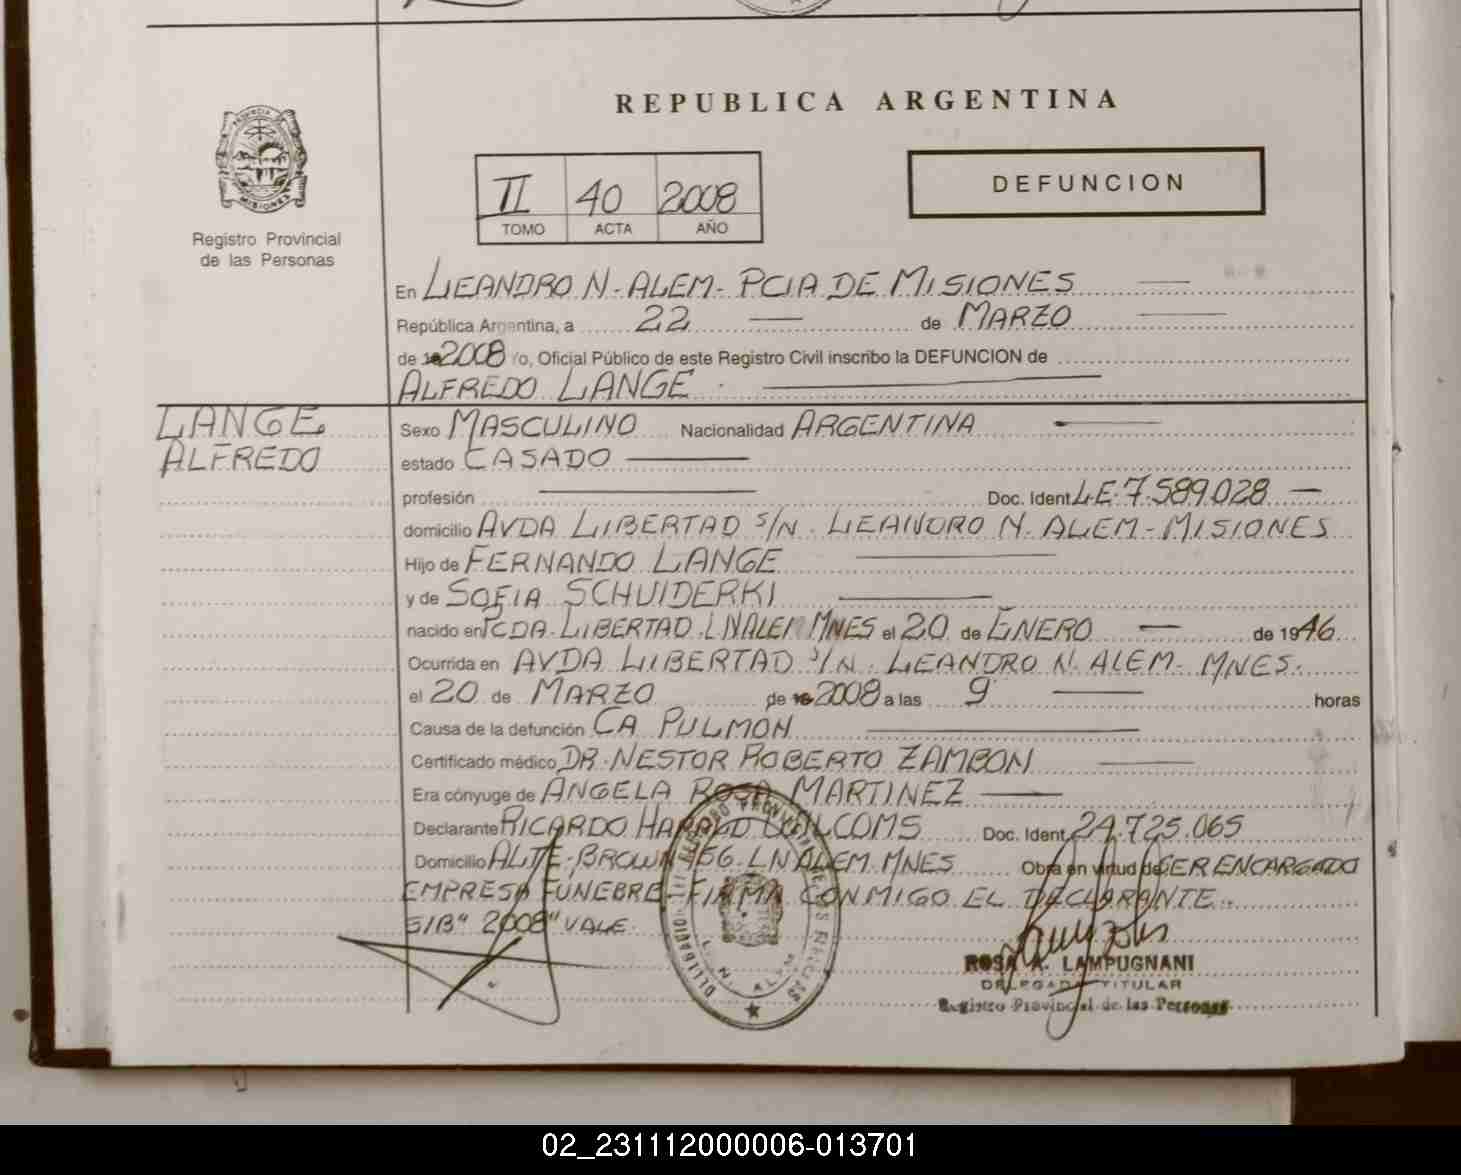 REPUBLICA ARGENTINA
PROVINCIA DE
MISIONES
Registro Provincial
de las Personas
II 40 2008
TOMO ACTA AÑO
DEFUNCION
En LEANDRO N. ALEM - PCIA DE MISIONES
República Argentina, a 22 de MARZO
de 2008 yo, Oficial Público de este Registro Civil inscribo la DEFUNCION de
ALFREDO LANGE
LANGE
ALFREDO
Sexo MASCULINO Nacionalidad ARGENTINA
estado CASADO
profesión Doc. Ident. L.E. 7.589.028
domicilio AVDA LIBERTAD S/N. LEANDRO N. ALEM - MISIONES
Hijo de FERNANDO LANGE
y de SOFIA SCHUIDERKI
nacido en PCDA. LIBERTAD. L N ALEM MNES el 20 de ENERO de 1946
Ocurrida en AVDA LIBERTAD S/N. LEANDRO N. ALEM - MNES.
el 20 de MARZO de 2008 a las 9 horas
Causa de la defunción CA PULMON
Certificado médico DR. NESTOR ROBERTO ZAMBON
Era cónyuge de ANGELA ROSA MARTINEZ
Declarante RICARDO HARALD Doc. Ident. 24.725.065
Domicilio ALTE. BROWN 56. L N ALEM. MNES Obra en virtud de SER ENCARGADO
EMPRESA FUNEBRE - FIRMA CONMIGO EL DECLARANTE.
S/B "2008" VALE.
DELEGACION DEL REGISTRO PROVINCIAL DE LAS PERSONAS
L. N. ALEM
ROSA A. LAMPUGNANI
DELEGADA TITULAR
Registro Provincial de las Personas
02_231112000006-013701